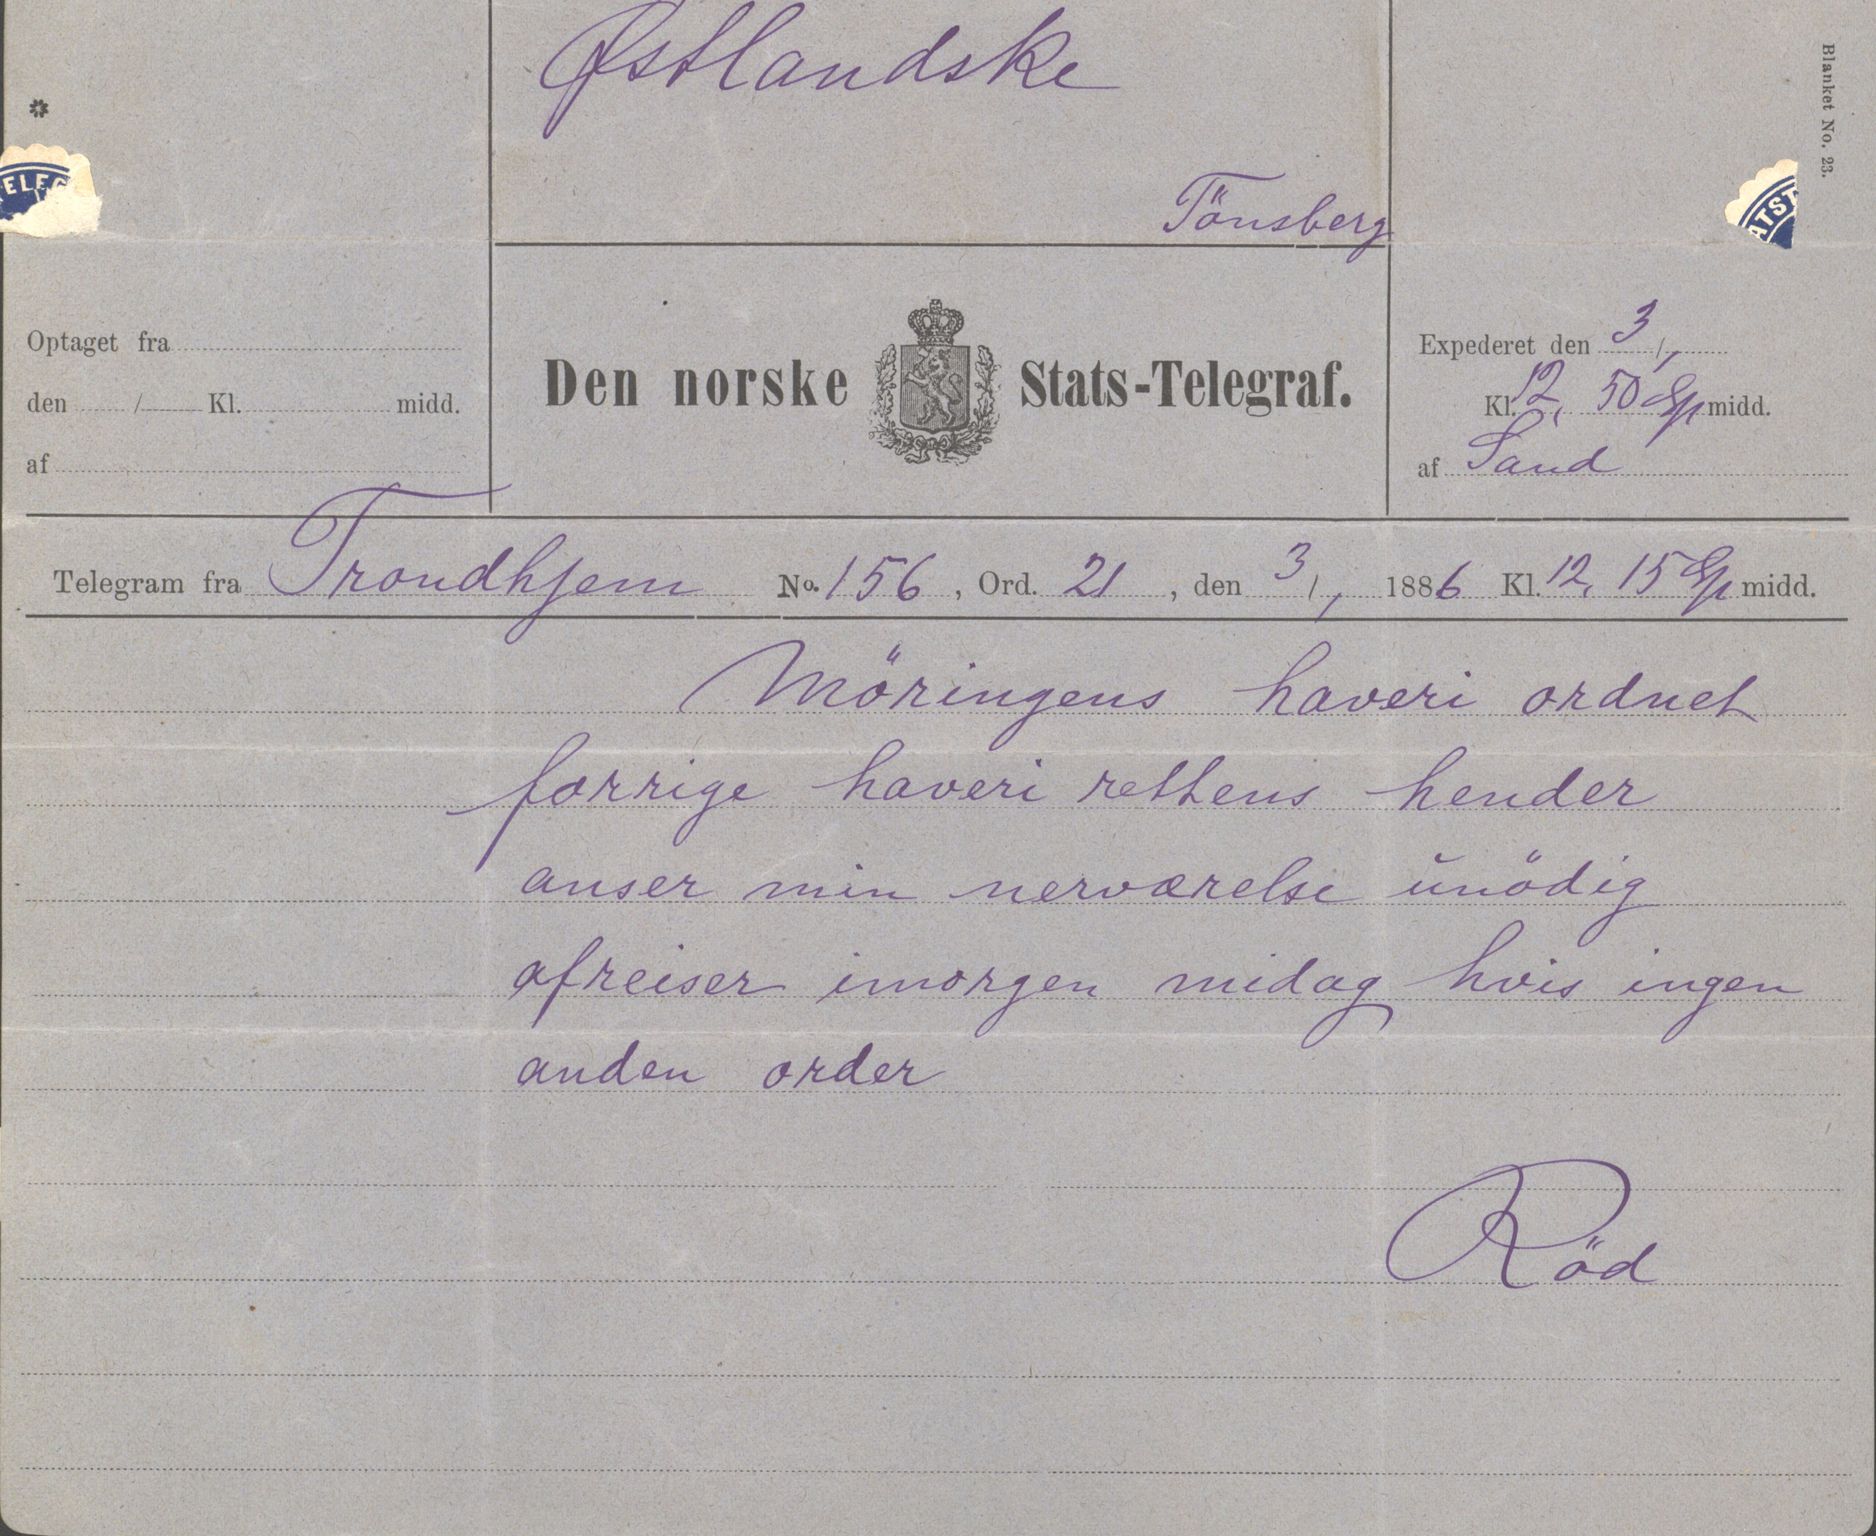 Østlandske
Tönsberg
Blanket No. 23.
ELEG
ATST
Optaget fra
den / Kl. midd.
af
Den norske Stats-Telegraf.
Expederet den 3/1
Kl. 12,50 Ep midd.
af Sand
Telegram fra Trondhjem No. 156, Ord. 21, den 3/1 1886 Kl. 12,15 Ep midd.
Möringens haveri ordnet
forrige haveri rettens hender
anser min nerværelse unödig
afreiser imorgen midag hvis ingen
anden order
Röd